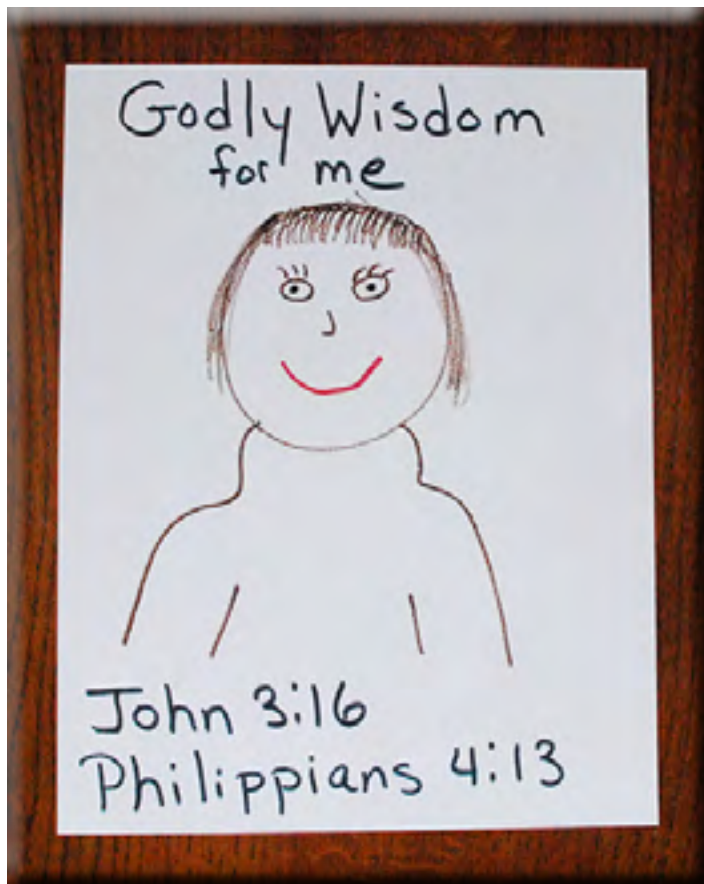 Godly Wisdom
for me
John 3:16
Philippians 4:13